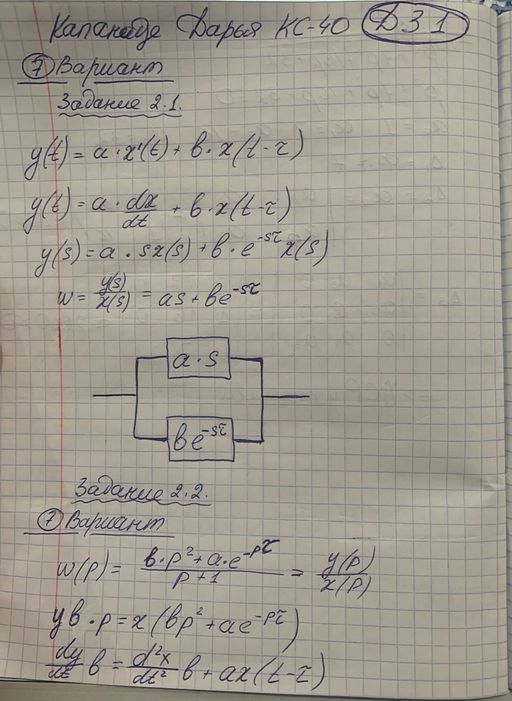 Капанадзе Дарья КС-40 ДЗ 1
7 Вариант
Задание 2.1.
y(t) = a · x'(t) + в · x(t - τ)
y(t) = a · dx/dt + в · x(t - τ)
y(s) = a · sx(s) + в · e^-sτ x(s)
w = y(s)/x(s) = as + вe^-sτ
a · s
вe^-sτ
Задание 2.2.
7 Вариант
w(p) = (в · p² + a · e^-pτ)/(p + 1) = y(p)/x(p)
yв · p = x(вp² + ae^-pτ)
dy/dt в = d²x/dt² в + ax(t - τ)